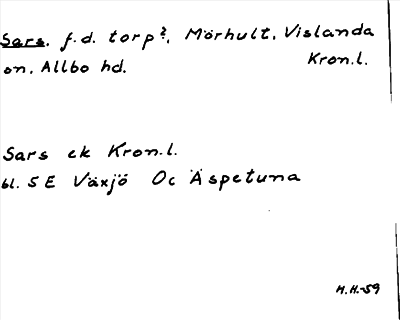 Sars, f.d. torp?, Mörhult, Vislanda
sn, Allbo hd. Kron.l.
Sars ek Kron.l.
bl. 5 E Växjö Oc Äspetuna
H.H.-59